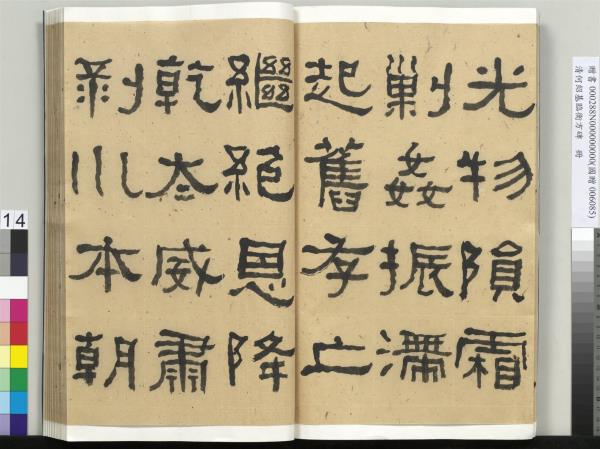 贈書 000288N000000000(國贈 006085)
清何紹基臨衡方碑 冊
光物隕霜
剿姦振滯
起舊存亡
繼絕恩降
乾太威肅
剥川本朝
14